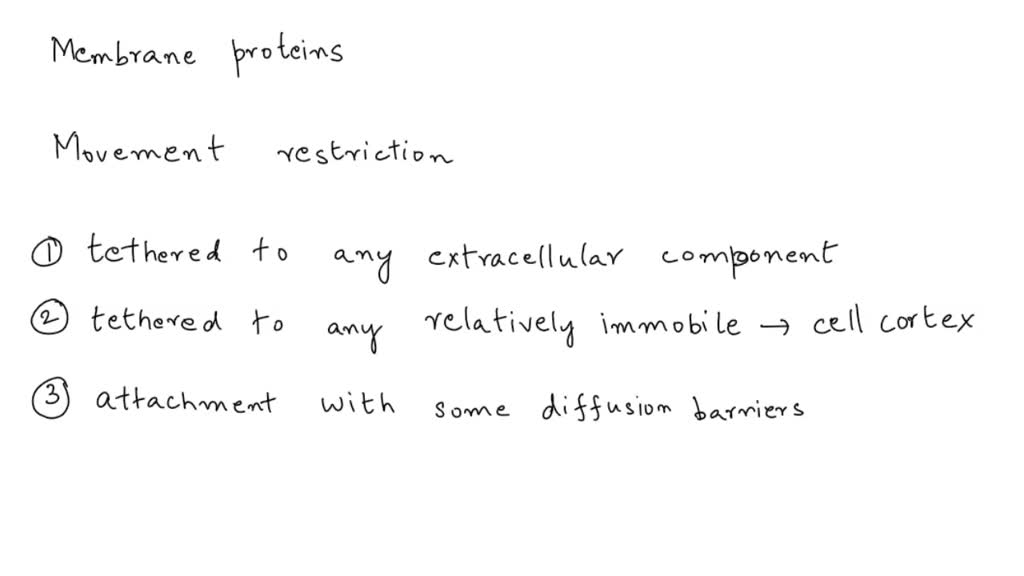 Membrane proteins
Movement restriction
① tethered to any extracellular component
② tethered to any relatively immobile → cell cortex
③ attachment with some diffusion barriers